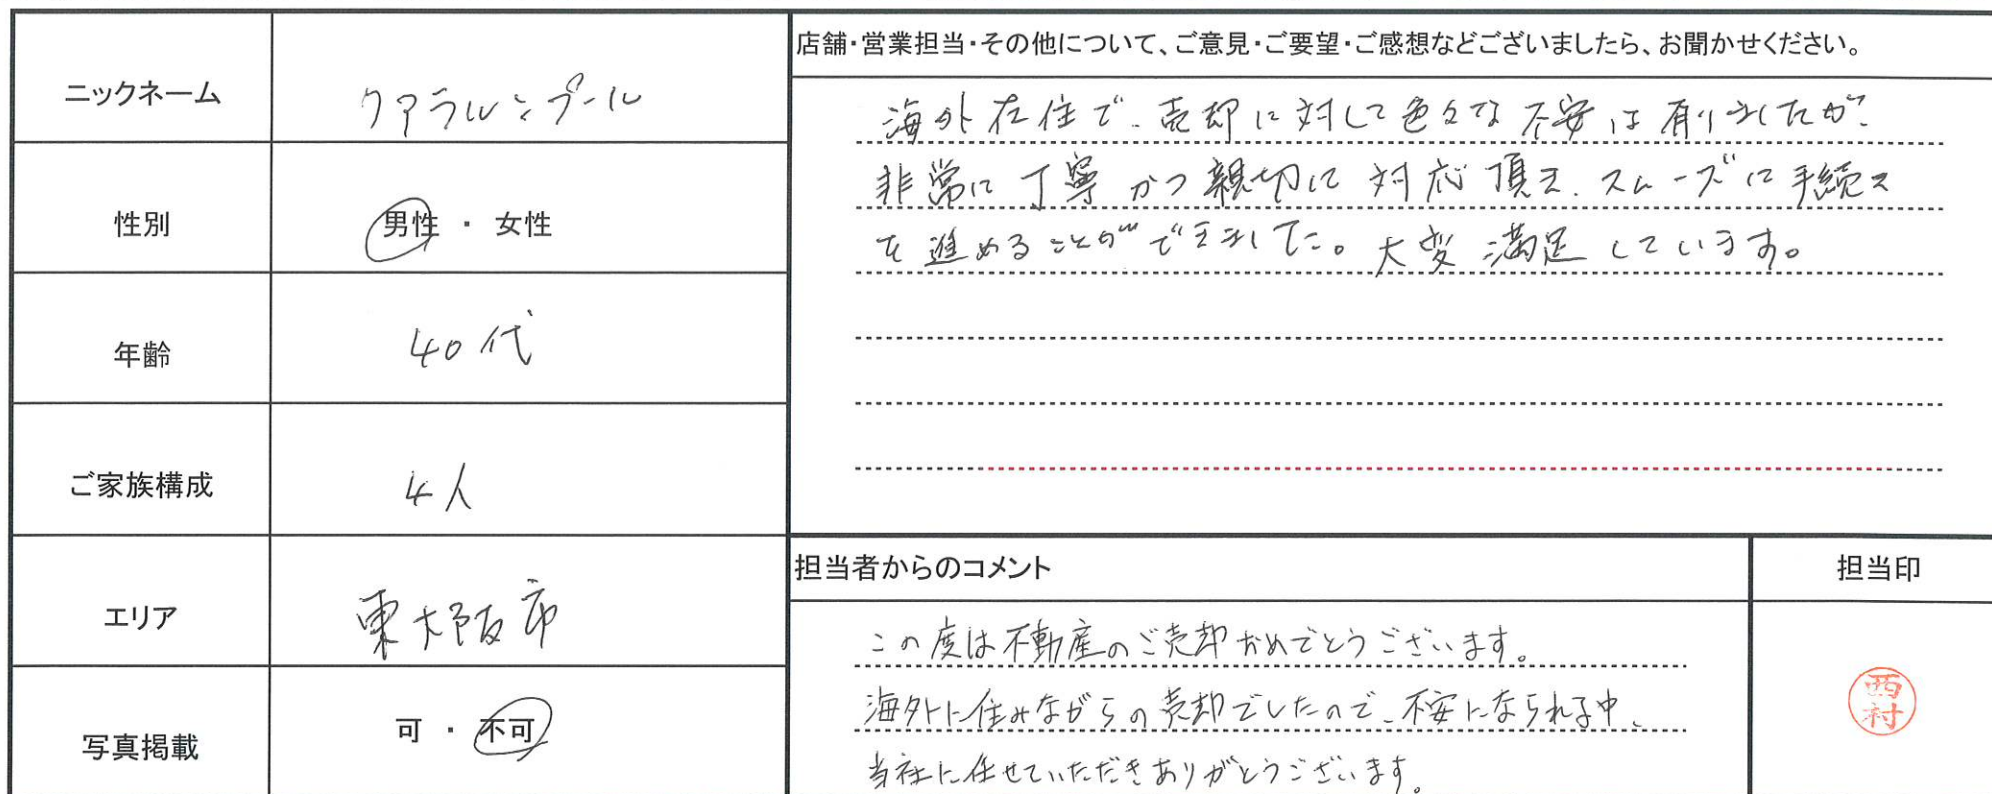 ニックネーム
クアラルンプール
性別
男性 ・ 女性
年齢
40代
ご家族構成
4人
エリア
東大阪市
写真掲載
可 ・ 不可
店舗・営業担当・その他について、ご意見・ご要望・ご感想などございましたら、お聞かせください。
海外在住で、売却に対して色々な不安は有りましたが、
非常に丁寧かつ親切に対応頂き、スムーズに手続き
を進めることができました。大変満足しています。
担当者からのコメント
この度は不動産のご売却おめでとうございます。
海外に住みながらの売却でしたので、不安になられる中、
当社に任せていただきありがとうございます。
担当印
西村